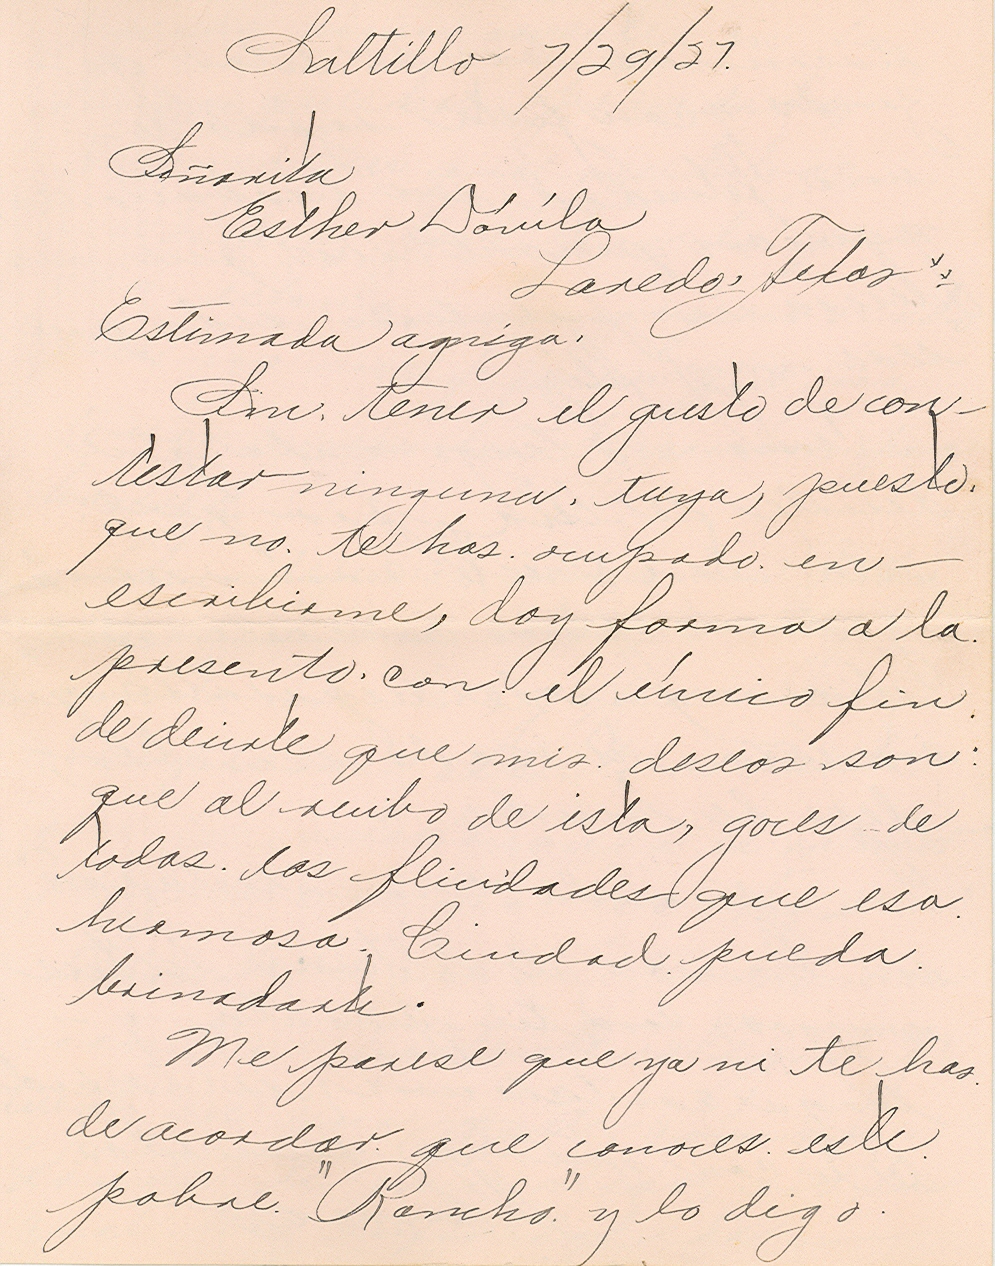 Saltillo 7/29/27.
Señorita
Esther Dávila
Laredo, Texas
Estimada amiga.
Sin. tener el gusto de con-
testar ninguna. tuya, puesto.
que no. te has. ocupado. en —
escribirme, doy forma a la.
presente. con. el único fin.
de decirte que mis. deseos son:
que al recibo de ista, goces de
todas. las flicidades que esa.
hermosa. Ciudad. pueda.
brinadarte.
Me parese que ya ni te has.
de acordar que conoces. este.
pobre. "Rancho." y lo digo.